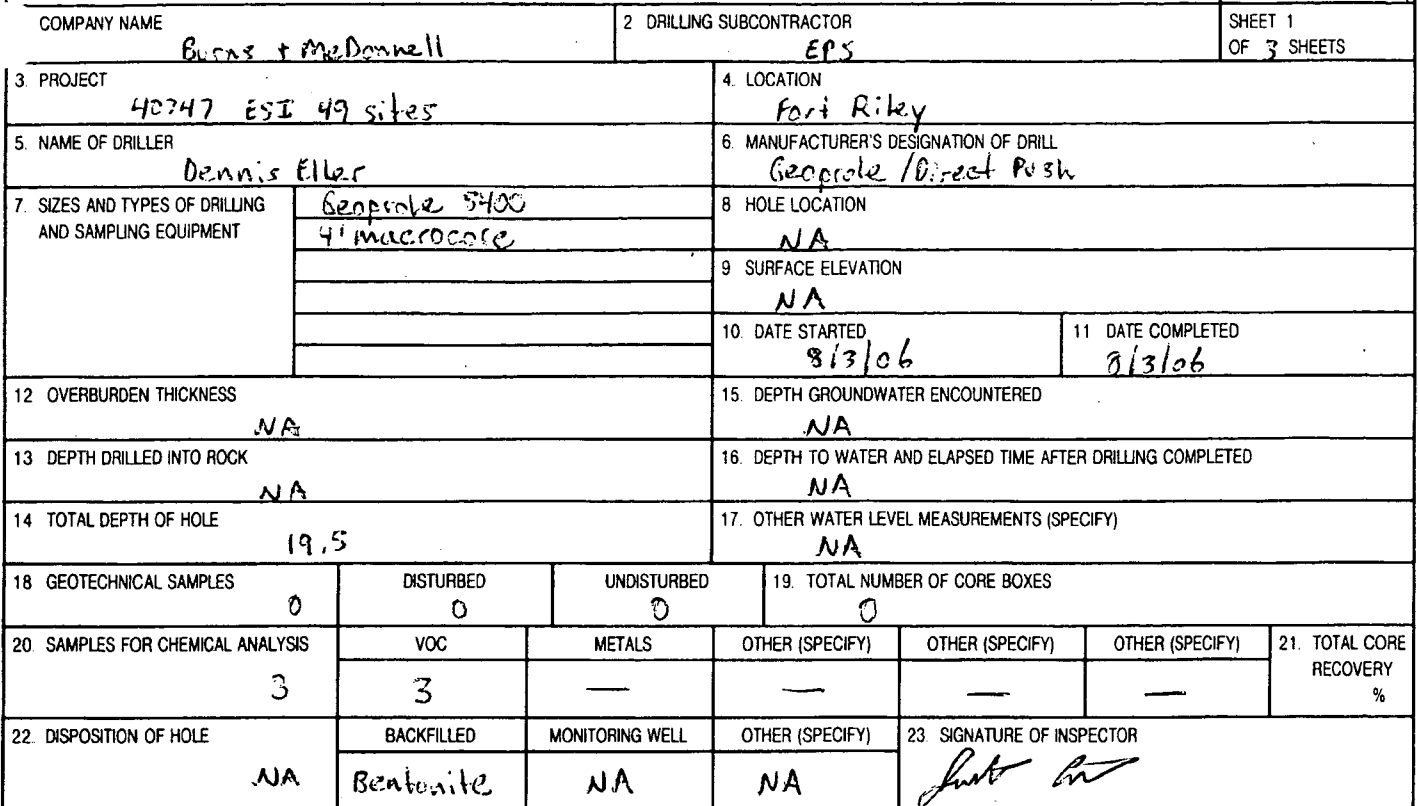 COMPANY NAME
Burns + McDonnell
2 DRILLING SUBCONTRACTOR
EPS
SHEET 1
OF 3 SHEETS
3. PROJECT
40747 ESI 49 sites
4. LOCATION
Fort Riley
5. NAME OF DRILLER
Dennis Eller
6. MANUFACTURER'S DESIGNATION OF DRILL
Geoprobe / Direct Push
7. SIZES AND TYPES OF DRILLING
AND SAMPLING EQUIPMENT
Geoprobe 5400
4' macrocore
8 HOLE LOCATION
NA
9 SURFACE ELEVATION
NA
10. DATE STARTED
8/3/06
11 DATE COMPLETED
8/3/06
12 OVERBURDEN THICKNESS
NA
15. DEPTH GROUNDWATER ENCOUNTERED
NA
13 DEPTH DRILLED INTO ROCK
NA
16. DEPTH TO WATER AND ELAPSED TIME AFTER DRILLING COMPLETED
NA
14 TOTAL DEPTH OF HOLE
19.5
17. OTHER WATER LEVEL MEASUREMENTS (SPECIFY)
NA
18 GEOTECHNICAL SAMPLES
0
DISTURBED
0
UNDISTURBED
0
19. TOTAL NUMBER OF CORE BOXES
0
20. SAMPLES FOR CHEMICAL ANALYSIS
3
VOC
3
METALS
—
OTHER (SPECIFY)
—
OTHER (SPECIFY)
—
OTHER (SPECIFY)
—
21. TOTAL CORE
RECOVERY
%
22. DISPOSITION OF HOLE
NA
BACKFILLED
Bentonite
MONITORING WELL
NA
OTHER (SPECIFY)
NA
23. SIGNATURE OF INSPECTOR